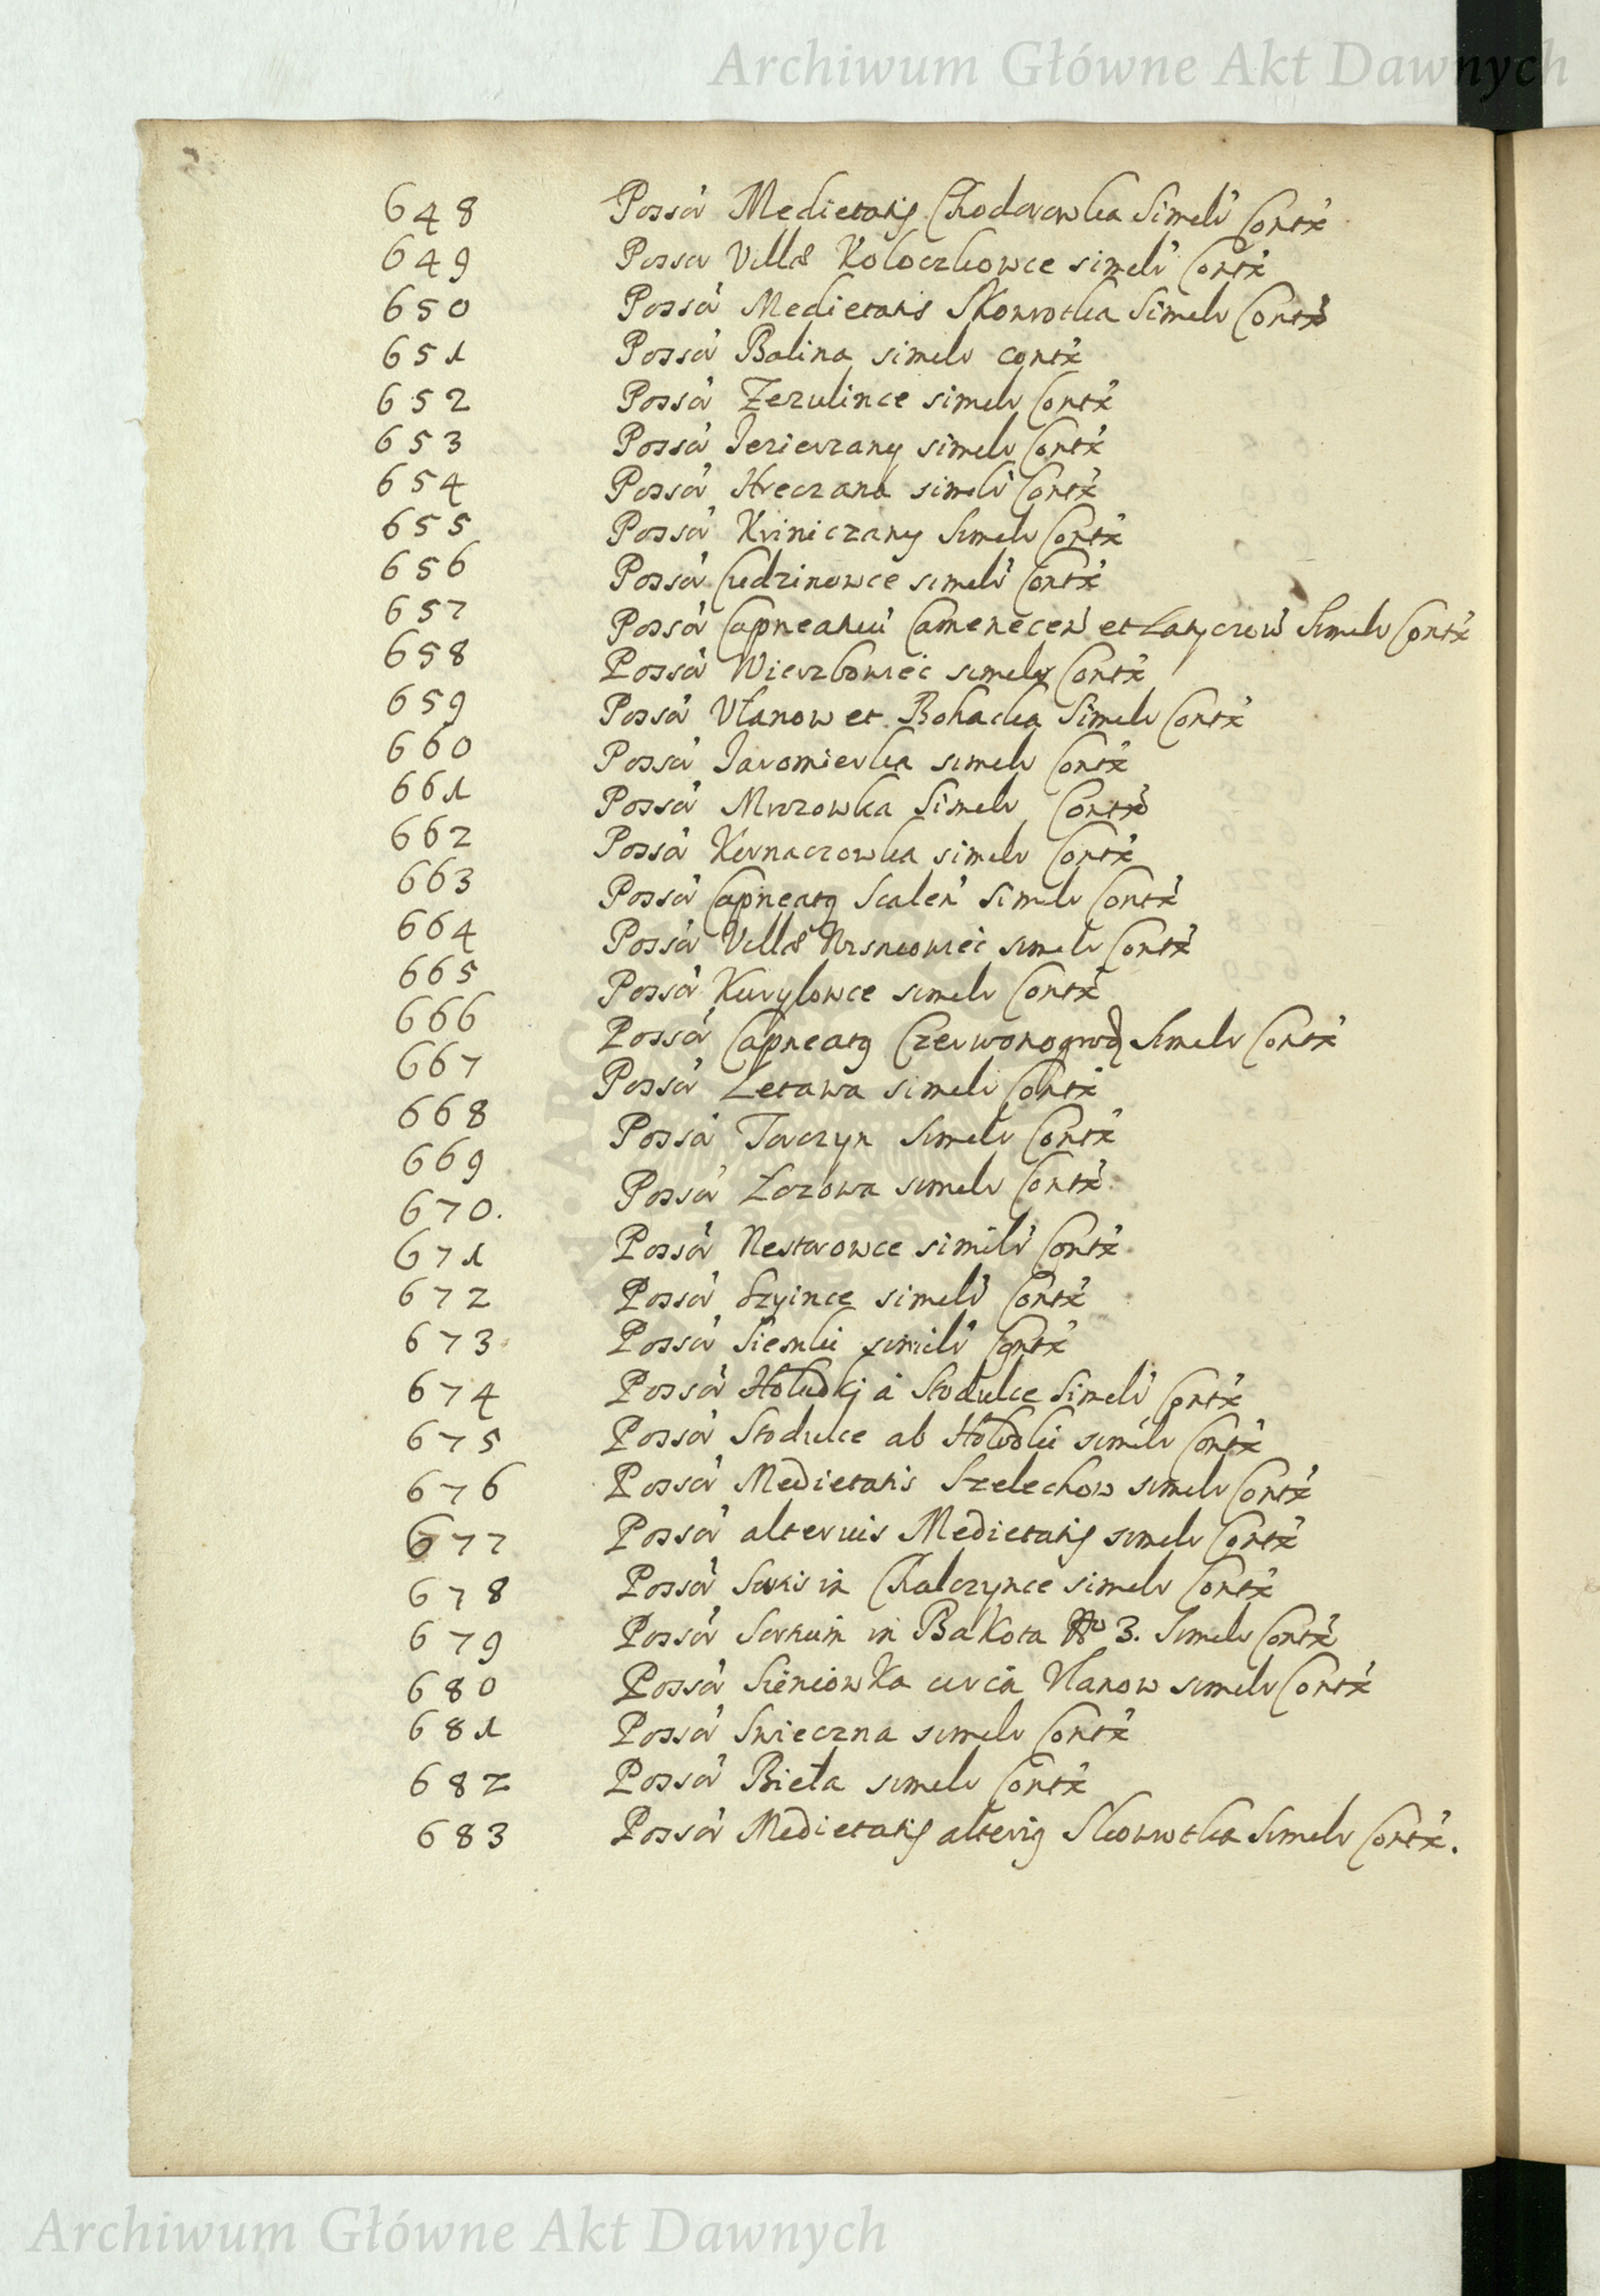 Archiwum Główne Akt Dawnych
648 Possór Medietatis Chodorowka Simelr Contx
649 Possor Villæ Koloczkowce simelr Contx
650 Possór Medietatis Skorrotka Simelr Contx
651 Possór Balina simelr contx
652 Possór Zezulince simelr Contx
653 Possór Jezierzany simelr Contx
654 Possór Hreczana simelr Contx
655 Possór Kriniczany Simelr Contx
656 Possór Cudzinowce simelr Contx
657 Possór Capneatuu Camenecen et Latyczow Simelr Contx
658 Possór Wierzbowiec simelr Contx
659 Possór Vłanow et Bohacka Simelr Contx
660 Possór Jaromierka simelr Contx
661 Possór Mrozowka Simelr Contx
662 Possór Kurnaczowka simelr Contx
663 Possór Capneatg Scalen Simelr Contx
664 Possór Villæ simelr Contx
665 Possór Kurylowce simelr Contx
666 Possór Capneatg Czerwonogrod Simelr Contx
667 Possór Letawa simelr Contx
668 Possór Torczyn Simelr Contx
669
670. Possór Lozowa simelr Contx
671 Possór Nestorowce similr Contx
672 Possór Szyince simelr Contx
673 Possór Sienki similr Contx
674 Possór Hołudki à Stodulce Simelr Contx
675 Possór Stodulce ab Holudki simelr Contx
676 Possór Medietatis Szelechow simelr Contx
677 Possór alterius Medietatis simelr Contx
678 Possór Sortis in Chalczynce simelr Contx
679 Possór Sortium in Bakota No 3. Simelr Contx
680 Possór Sieniowka circa Vlanow simelr Contx
681 Possór Swieczna simelr Contx
682 Possór Bieła simelr Contx
683 Possór Medietatis alterig Skorwotka Simelr Contx.
Archiwum Główne Akt Dawnych